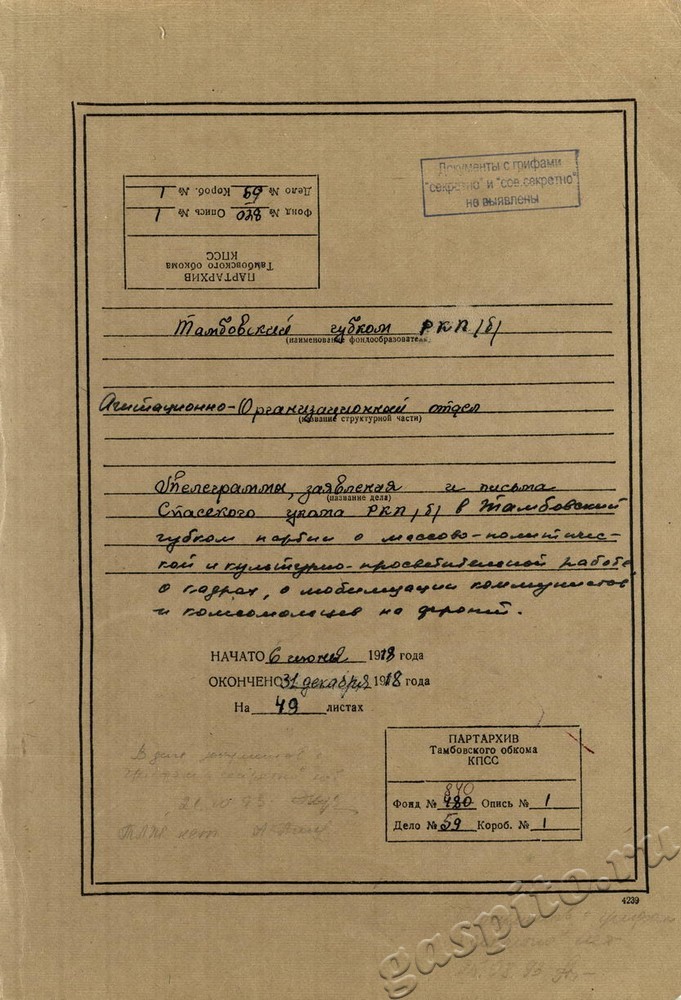 Документы с грифами
"секретно" и "сов.секретно"
не выявлены
ПАРТАРХИВ
Тамбовского обкома
КПСС
Фонд № 840 Опись № 1
Дело № 59 Короб. № 1
Тамбовский губком РКП/б/
(наименование фондообразователя)
Агитационно-Организационный отдел
(название структурной части)
Телеграммы, заявления и письма
(название дела)
Спасского укома РКП/б/ в Тамбовский
губком партии о массово-политичес-
кой и культурно-просветительной работе,
о кадрах, о мобилизации коммунистов
и комсомольцев на фронт.
НАЧАТО 6 июня 1918 года
ОКОНЧЕНО 31 декабря 1918 года
На 49 листах
ПАРТАРХИВ
Тамбовского обкома
КПСС
840
Фонд № Опись № 1
Дело № 59 Короб. № 1
4239
gaspito.ru